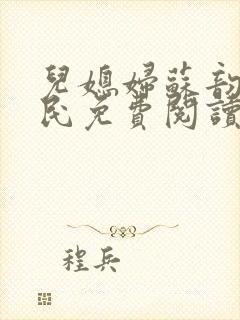 兒媳婦蘇韵
民免費閱讀
程兵